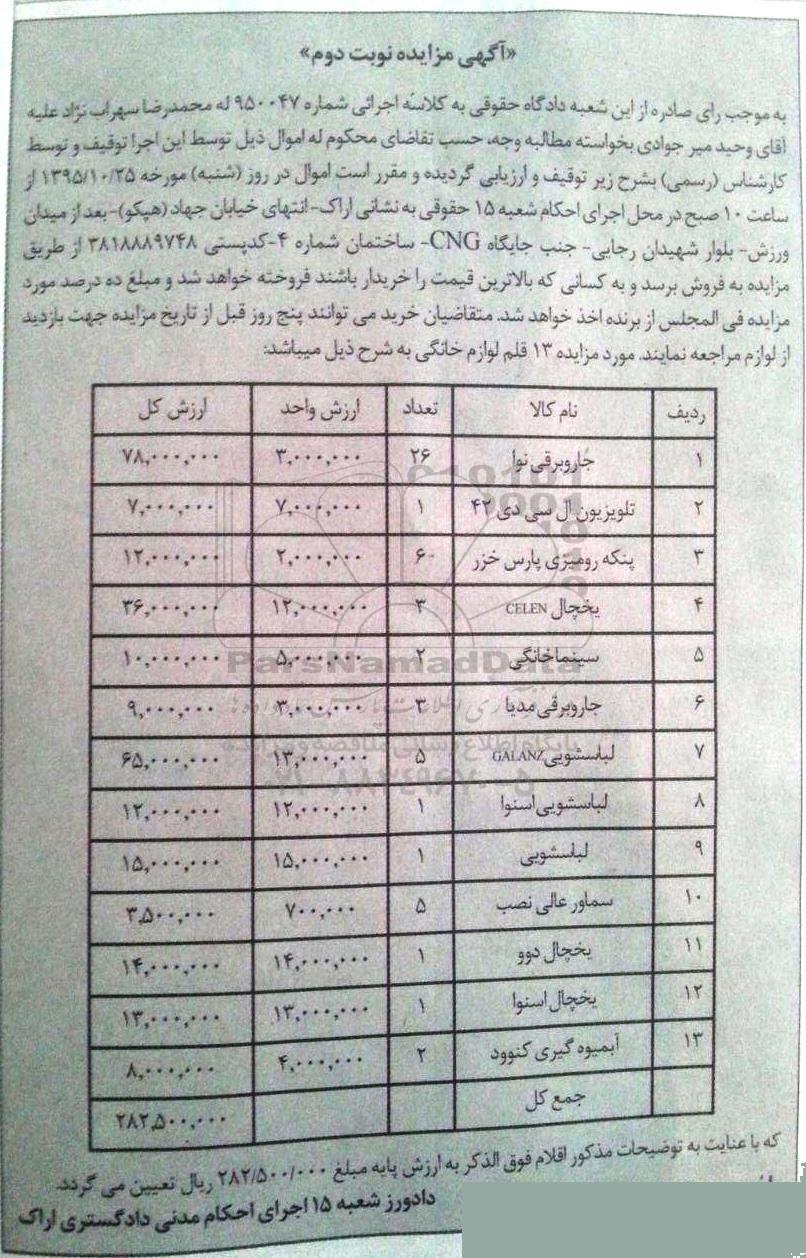 «آگهی مزایده نوبت دوم»
به موجب رای صادره از این شعبه دادگاه حقوقی به کلاسه اجرائی شماره ۹۵۰۰۴۷ له محمدرضا سهراب نژاد علیه
آقای وحید میر جوادی بخواسته مطالبه وجه، حسب تقاضای محکوم له اموال ذیل توسط این اجرا توقیف و توسط
کارشناس (رسمی) بشرح زیر توقیف و ارزیابی گردیده و مقرر است اموال در روز (شنبه) مورخه ۱۳۹۵/۱۰/۲۵ از
ساعت ۱۰ صبح در محل اجرای احکام شعبه ۱۵ حقوقی به نشانی اراک- انتهای خیابان جهاد (هپکو)- بعد از میدان
ورزش- بلوار شهیدان رجایی- جنب جایگاه CNG- ساختمان شماره ۴-کدپستی ۳۸۱۸۸۸۹۷۴۸ از طریق
مزایده به فروش برسد و به کسانی که بالاترین قیمت را خریدار باشند فروخته خواهد شد و مبلغ ده درصد مورد
مزایده فی المجلس از برنده اخذ خواهد شد. متقاضیان خرید می توانند پنج روز قبل از تاریخ مزایده جهت بازدید
از لوازم مراجعه نمایند. مورد مزایده ۱۳ قلم لوازم خانگی به شرح ذیل میباشد:
ردیف نام کالا تعداد ارزش واحد ارزش کل
۱ جاروبرقی نوا ۲۶ ۳,۰۰۰,۰۰۰ ۷۸,۰۰۰,۰۰۰
۲ تلویزیون ال سی دی ۴۲ ۱ ۷,۰۰۰,۰۰۰ ۷,۰۰۰,۰۰۰
۳ پنکه رومیزی پارس خزر ۶ ۲,۰۰۰,۰۰۰ ۱۲,۰۰۰,۰۰۰
۴ یخچال CELEN ۳ ۱۲,۰۰۰,۰۰۰ ۳۶,۰۰۰,۰۰۰
۵ سینما خانگی ۲ ۵,۰۰۰,۰۰۰ ۱۰,۰۰۰,۰۰۰
۶ جاروبرقی مدیا ۳ ۳,۰۰۰,۰۰۰ ۹,۰۰۰,۰۰۰
۷ لباسشویی GALANZ ۵ ۱۳,۰۰۰,۰۰۰ ۶۵,۰۰۰,۰۰۰
۸ لباسشویی اسنوا ۱ ۱۲,۰۰۰,۰۰۰ ۱۲,۰۰۰,۰۰۰
۹ لباسشویی ۱ ۱۵,۰۰۰,۰۰۰ ۱۵,۰۰۰,۰۰۰
۱۰ سماور عالی نصب ۵ ۷۰۰,۰۰۰ ۳,۵۰۰,۰۰۰
۱۱ یخچال دوو ۱ ۱۴,۰۰۰,۰۰۰ ۱۴,۰۰۰,۰۰۰
۱۲ یخچال اسنوا ۱ ۱۳,۰۰۰,۰۰۰ ۱۳,۰۰۰,۰۰۰
۱۳ آبمیوه گیری کنوود ۲ ۴,۰۰۰,۰۰۰ ۸,۰۰۰,۰۰۰
جمع کل ۲۸۲,۵۰۰,۰۰۰
ParsNamadData
پایگاه اطلاع رسانی مناقصه و مزایده
که با عنایت به توضیحات مذکور اقلام فوق الذکر به ارزش پایه مبلغ ۲۸۲/۵۰۰/۰۰۰ ریال تعیین می گردد.
دادورز شعبه ۱۵ اجرای احکام مدنی دادگستری اراک